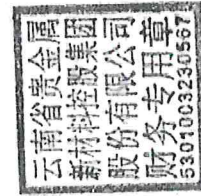 云南省贵金属
新材料控股集团
股份有限公司
财务专用章
5301003230567